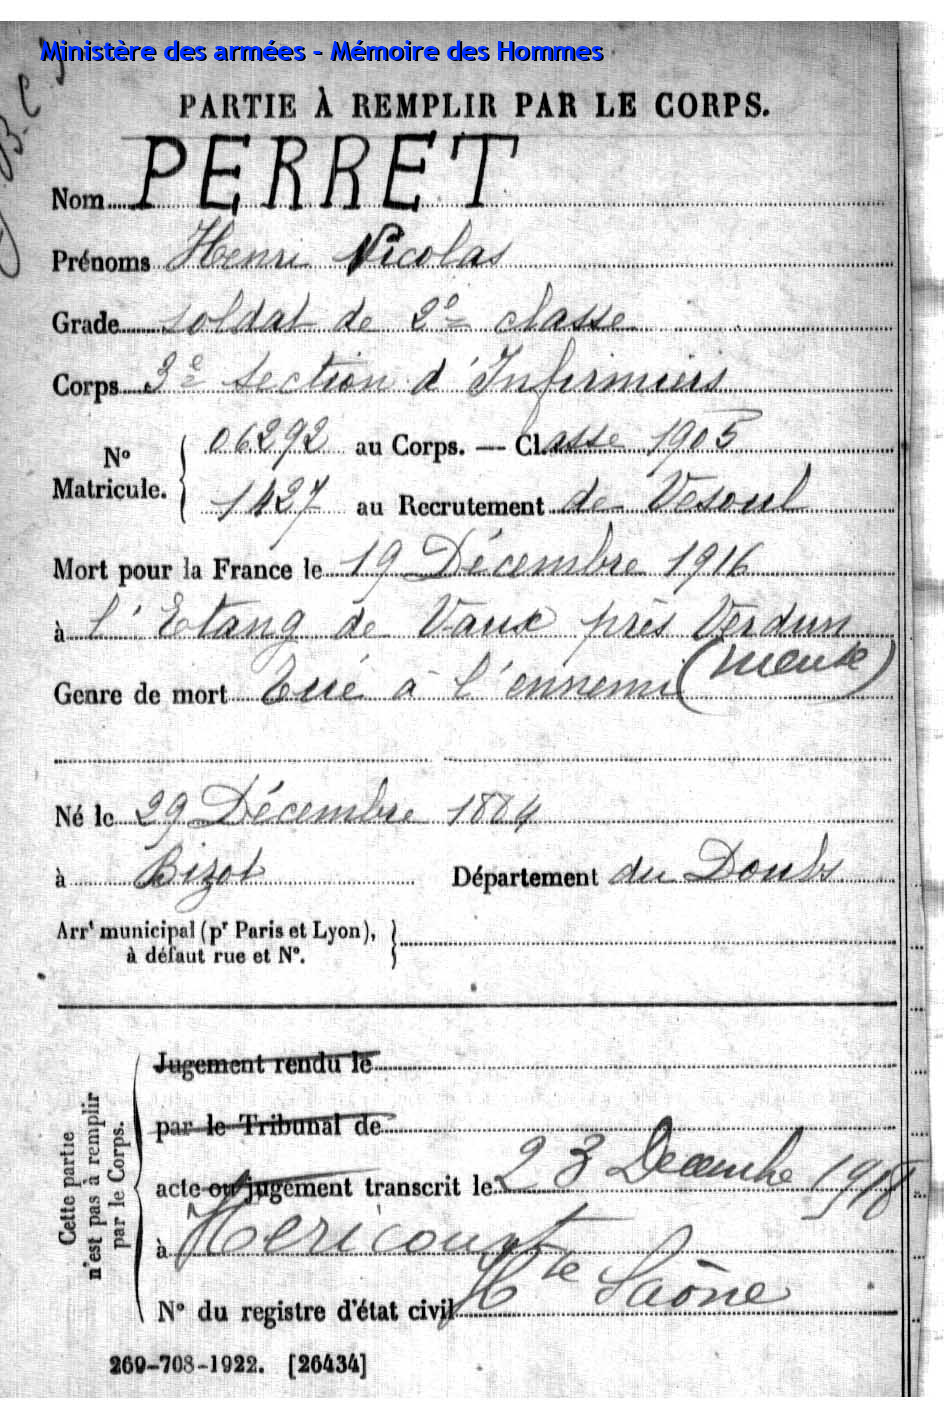 Ministère des armées - Mémoire des Hommes
PARTIE À REMPLIR PAR LE CORPS.
Nom PERRET
Prénoms Henri Nicolas
Grade soldat de 2e classe
Corps 3e Section d'Infirmiers
No Matricule. 06292 au Corps. — Cl.asse 1905
1427 au Recrutement de Vesoul
Mort pour la France le 19 Décembre 1916
à l'Etang de Vaux près Verdun
(Meuse)
Genre de mort Tué à l'ennemi
Né le 29 Décembre 1884
à Bizot Département du Doubs
Arrt municipal (pr Paris et Lyon),
à défaut rue et No.
Cette partie
n'est pas à remplir
par le Corps.
Jugement rendu le
par le Tribunal de
acte ou jugement transcrit le 23 Decembre 1918
à Héricourt
Hte Saône
No du registre d'état civil
269-708-1922. [26434]